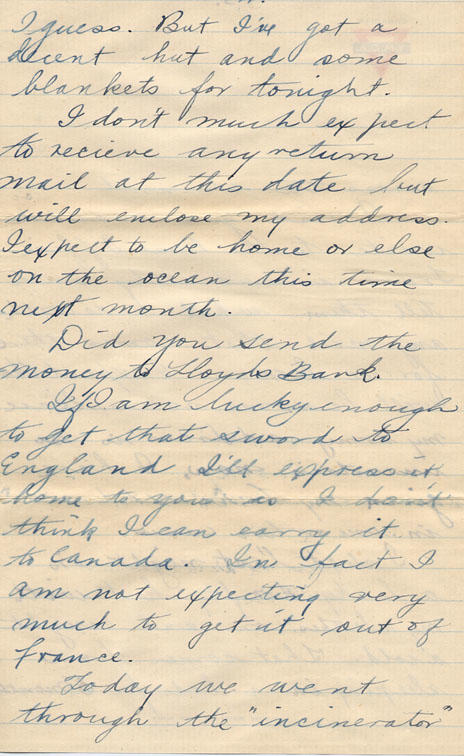 I guess. But I've got a
decent hut and some
blankets for tonight.
I don't much expect
to recieve any return
mail at this date but
will enclose my address.
I expect to be home or else
on the ocean this time
next month.
Did you send the
money to Lloyds Bank.
If I am lucky enough
to get that sword to
England I'll express it
home to you as I don't
think I can carry it
to Canada. In fact I
am not expecting very
much to get it out of
France.
Today we went
through the "incinerator"